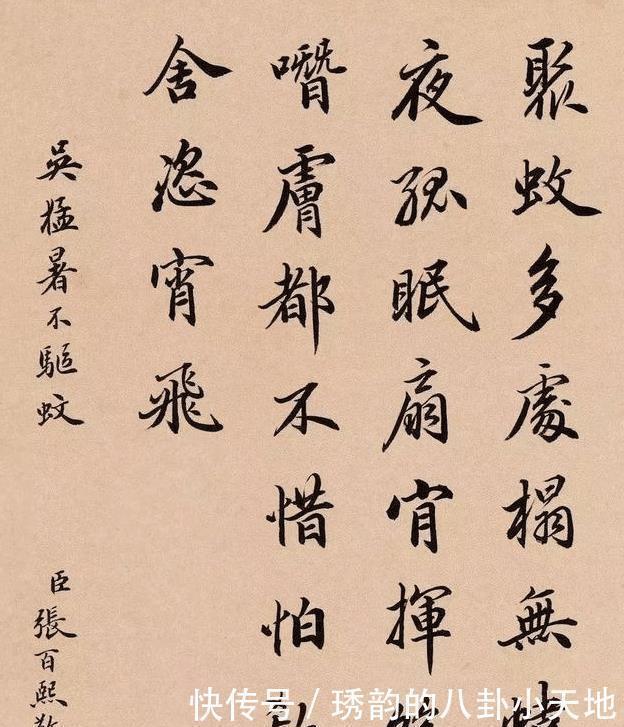 聚蚊多處榻無
夜孤眠扇肯揮
噆膚都不惜怕
舍恣宵飛
吳猛暑不驅蚊
臣張百熙敬
快传号/琇韵的八卦小天地